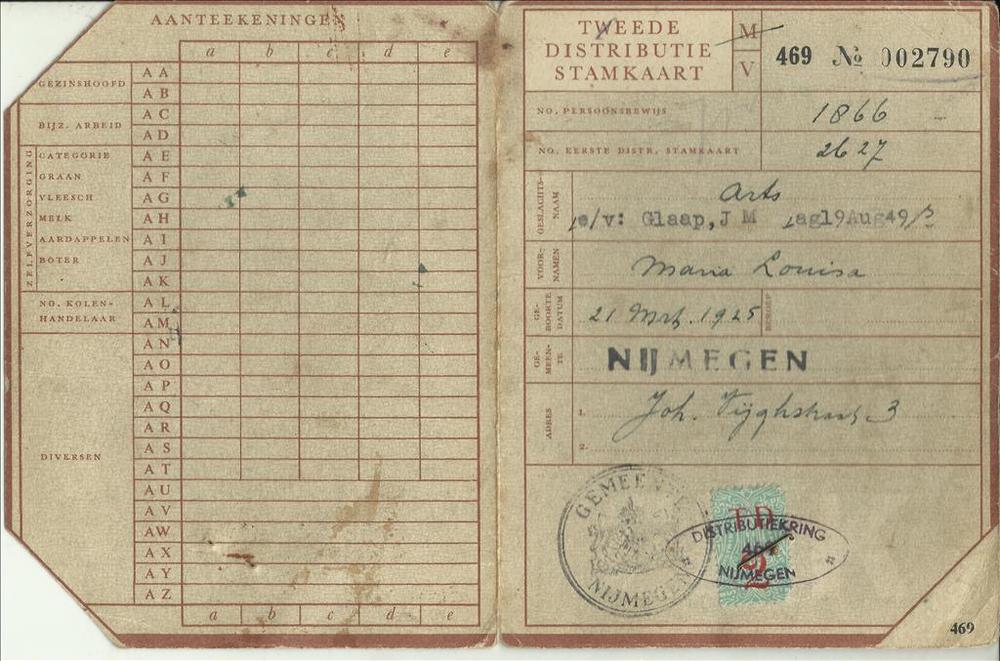 AANTEEKENINGEN
a b c d e
GEZINSHOOFD
BIJZ. ARBEID
ZELFVERZORGING
CATEGORIE
GRAAN
VLEESCH
MELK
AARDAPPELEN
BOTER
NO. KOLEN-
HANDELAAR
DIVERSEN
A A
A B
A C
A D
A E
A F
A G
A H
A I
A J
A K
A L
A M
A N
A O
A P
A Q
A R
A S
A T
A U
A V
A W
A X
A Y
A Z
a b c d e
TWEEDE
DISTRIBUTIE
STAMKAART
M
V
469 No 002790
NO. PERSOONSBEWIJS 1866
NO. EERSTE DISTR. STAMKAART 2627
GESLACHTS-
NAAM
Arts
e/v: Glaap, J M agl9Aug49
VOOR-
NAMEN
Maria Louisa
GE-
BOORTE
DATUM
21 Mrt. 1925
BEROEP
GE-
MEEN-
TE
NIJMEGEN
ADRES
1. Joh. Vijghstraat 3
2.
GEMEENTE
NIJMEGEN
T D
2
DISTRIBUTIEKRING
469
NIJMEGEN
469